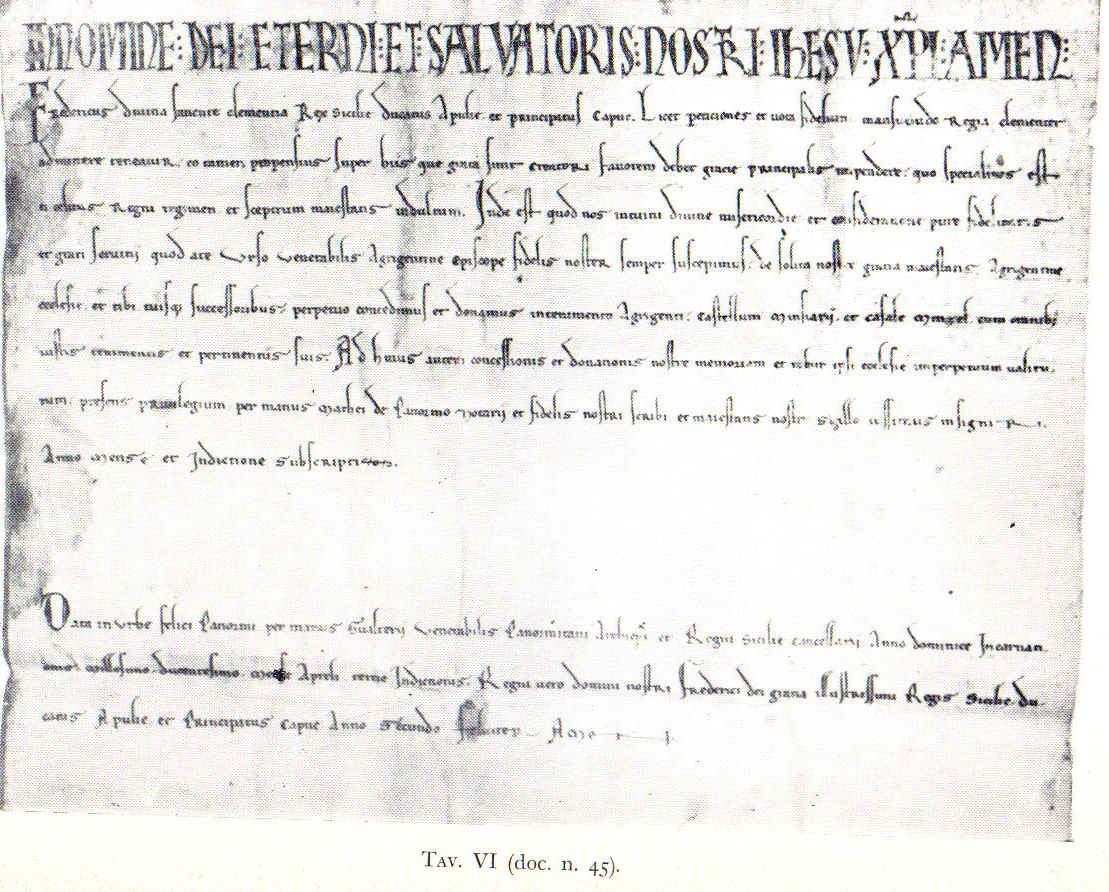 IN NOMINE DEI ETERNI ET SALVATORIS NOSTRI IHESU XPI AMEN
Fredericus divina favente clementia Rex Sicilie ducatus Apulie et principatus Capue. Licet peticiones et vota fidelium mansuetudo Regia clementer
admittere teneatur. eo tamen propensius super hiis que grata sunt creatori favorem debet gracie principalis impendere. quo specialius est
celitus Regni regimen et sceptrum maiestatis indultum. Inde est quod nos intuitu divine misericordie et consideratione pure fidelitatis
et grati servitii quod a te Urso venerabilis Agrigentine episcope fidelis noster semper suscepimus. de solita nostre gratia maiestatis. Agrigentine
ecclesie. et tibi tuisque successoribus perpetuo concedimus et donamus in tenimento Agrigenti. castellum Minsarii. et casale Minzel. cum omnibus
iustis tenimentis et pertinentiis suis. Ad huius autem concessionis et donationis nostre memoriam et robur ipsi ecclesie inperpetuum valitu
rum. presens privilegium per manus Mathei de Panormo Notarii et fidelis nostri scribi et maiestatis nostre sigillo iussimus insigniri.
Anno Mense et Indictione Subscriptis.
Data in Urbe felici Panormi per manus Gualterii Venerabilis Panormitani Archiepi et Regni Sicilie cancellarii Anno dominice Incarnati
onis Millesimo ducentesimo. Mense Aprelis tercie Indictionis. Regni vero domini nostri Frederici dei gratia illustrissimi Regis Sicilie. du
catus Apulie et Principatus Capue Anno Secundo feliciter Amen
TAV. VI (doc. n. 45).